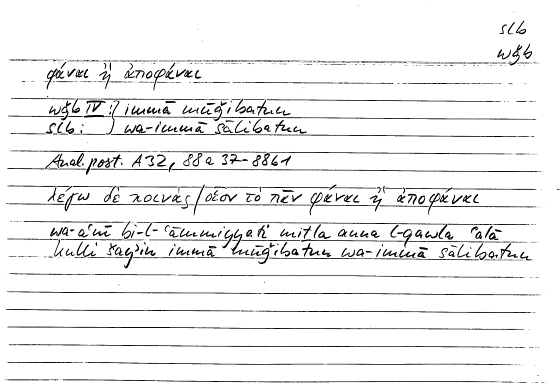 slb
wǧb
φάναι ἢ ἀποφάναι
wǧb IV: } immā mūǧibatun
slb: } wa-immā sālibatun
Anal. post. A 32, 88 a 37-88 b 1
λέγω δὲ κοινάς / οἷον τὸ πᾶν φάναι ἢ ἀποφάναι
wa-aʿnī bi-l-ʿāmmiyyati miṯla anna l-qawla ʿalā
kulli šayʾin immā mūǧibatun wa-immā sālibatun